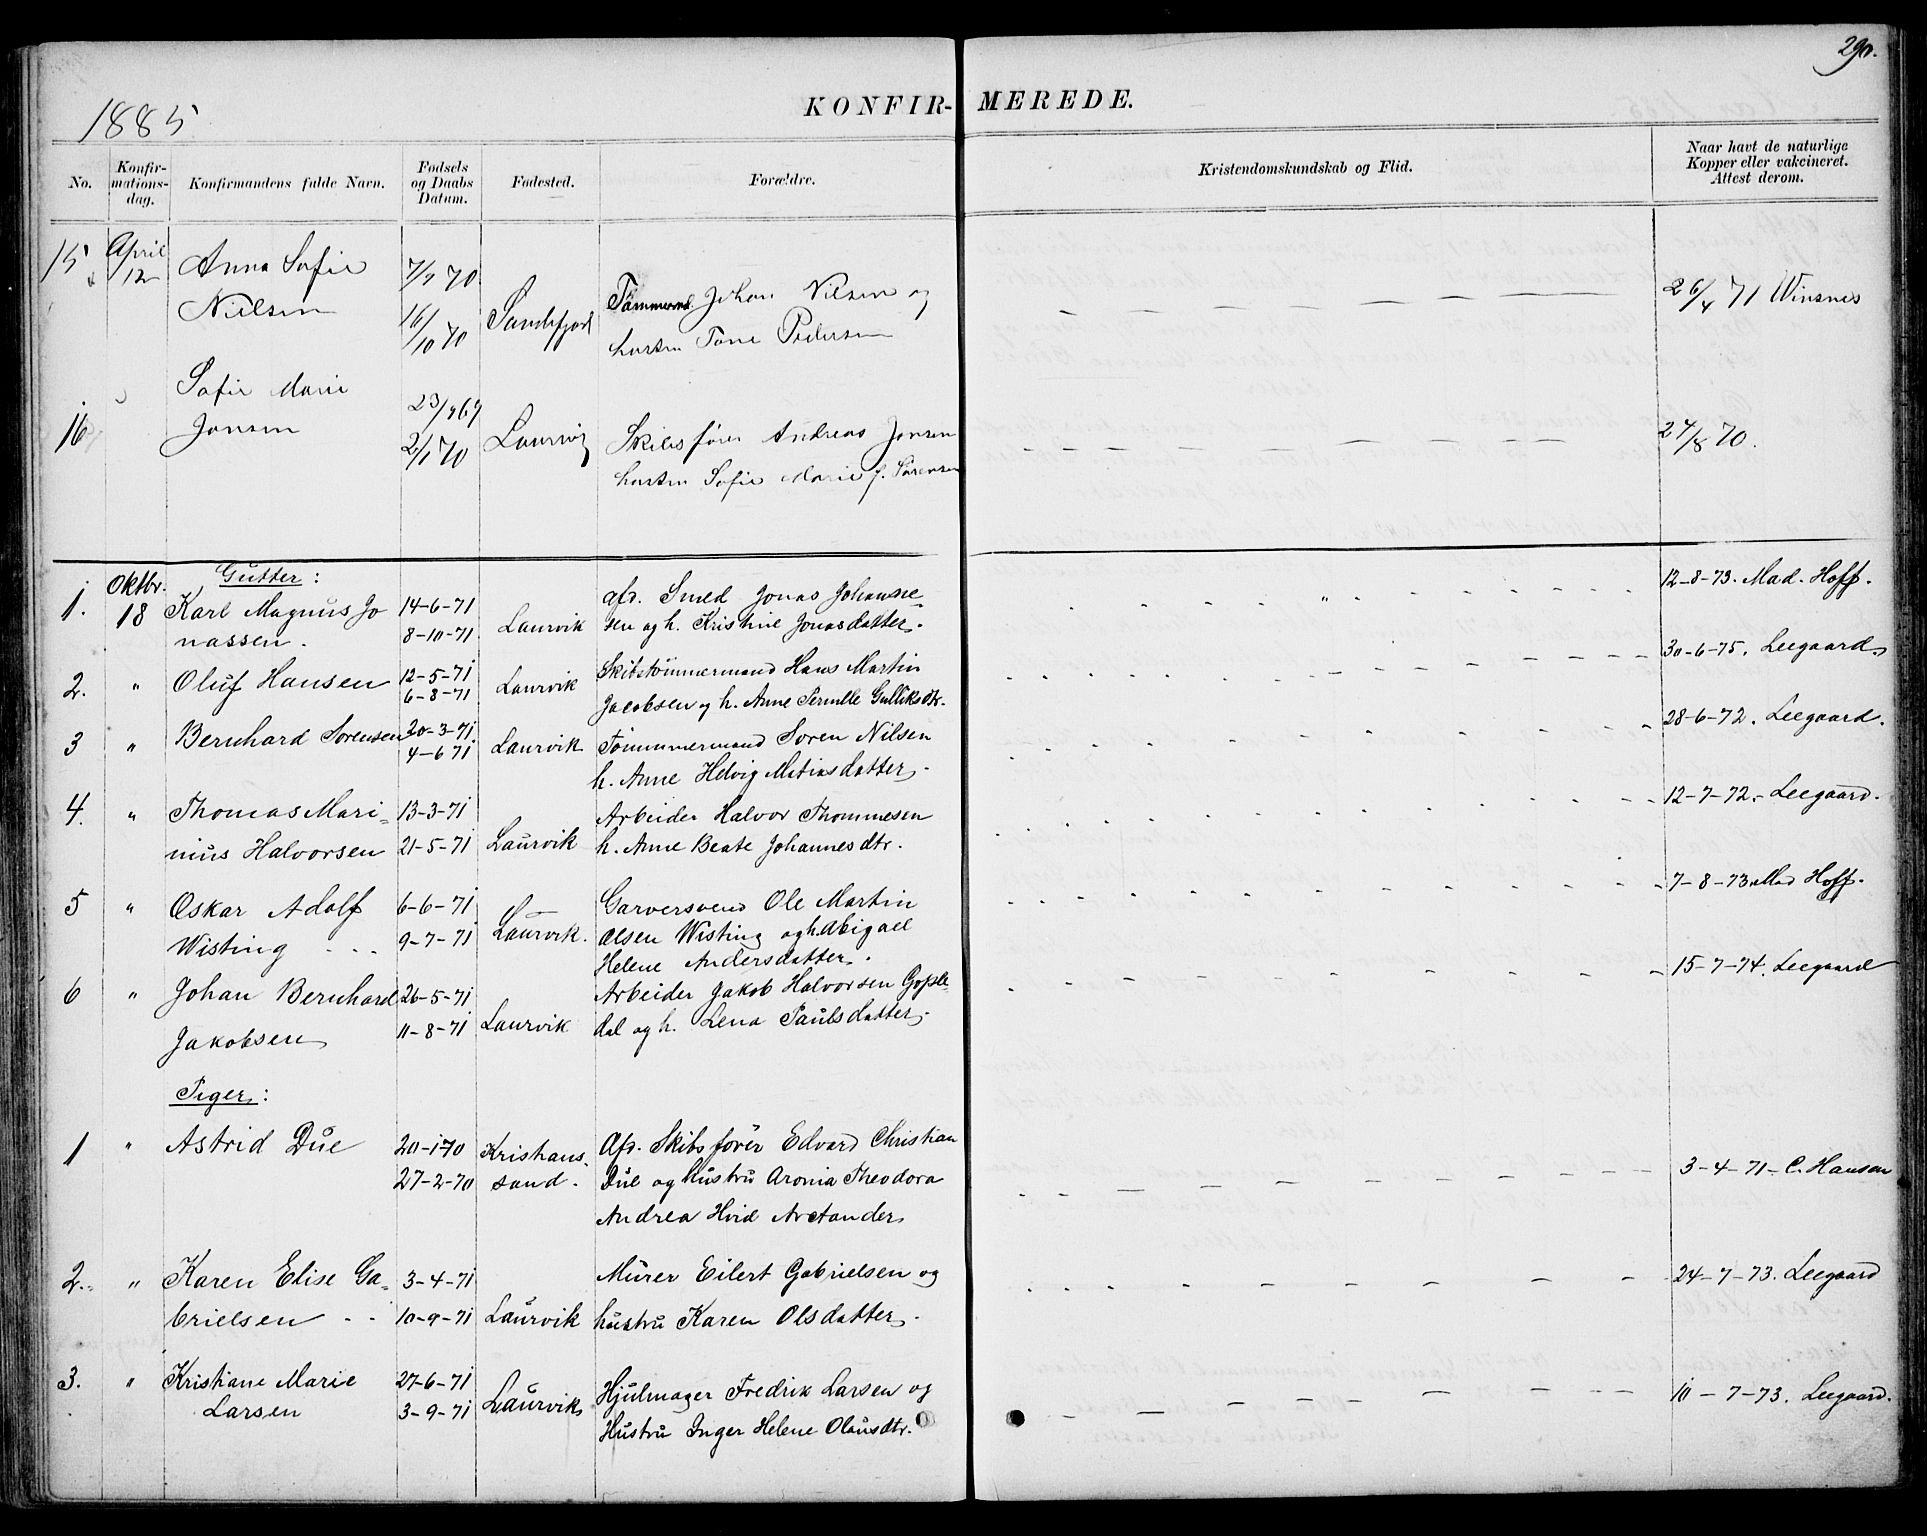 290.
1885
KONFIR-MEREDE.
No. Konfir-mations-dag. Konfirmandens fulde Navn. Fødsels og Daabs Datum. Fødested. Forældre. Kristendomskundskab og Flid. Naar havt de naturlige Kopper eller vakcineret. Attest derom.
15 April 12 Anna Sofie 70
Nielsen 16/10 70 Sandefjord Johan Nilsen og 26/4 71 Winsnes
hustru Tone Pedersen
Sofie Marie 69
16 Jonsen 2/1 70 Laurvig Skibsfører Andreas Jonsen 70.
hustru Sofie Marie f. Sørensen
Gutter:
1. Oktbr. 18 Karl Magnus Jo 14-6-71 Laurvik afd. Smed Jonas Johanne- 12-8-73. Mad. Hoff.
nassen. 8-10-71 sen og h. Kristine Jonasdatter.
2. " Oluf Hansen 12-5-71 Laurvik Skibstømmermand Hans Martin 30-6-75. Leegaard.
6-8-71 Jacobsen og h. Anne Pernille Gulliksdtr.
3 " Bernhard Sørensen 20-3-71 Laurvik Tømmermand Søren Nilsen 28-6-72. Leegaard.
4-6 71 h. Anne Helvig Matiasdatter.
4. " Thomas Mari- 13-3-71 Arbeider Halvor Thommesen 12-7-72. Leegaard.
nius Halvorsen 21-5-71 Laurvik h. Anne Beate Johannesdtr.
5 " Oskar Adolf 6-6-71 Garversvend Ole Martin 7-8-73 Mad Hoff.
Wisting 9-7-71 Laurvik. Olsen Wisting og h. Abigael
Helene Andersdatter.
6 " Johan Bernhard 26-5-71 Arbeider Jakob Halvorsen Gople- 15-7-74. Leegaard
Jakobsen 11-8-71 Laurvik dal og h. Lena Paulsdatter.
Piger:
1 " Astrid Due 20-1-70 Kristians- Afd. Skibsfører Edvard Christian 3-4-71- C. Hansen
27-2-70 sand. Due og hustru Aronia Theodora
Andrea Hvid Arctander
2. " Karen Elise Ga- 3-4-71 Murer Eilert Gabrielsen og 24-7-73. Leegaard
brielsen 10-9-71 Laurvik hustru Karen Olsdatter.
3. " Kristiane Marie 27-6-71 Laurvik Hjulmager Fredrik Larsen og 10-7-73. Leegaard.
Larsen 3-9-71 Hustru Inger Helene Olausdtr.